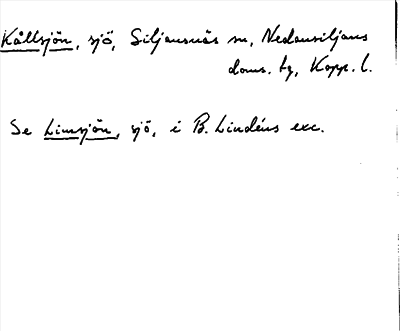 Kållsjön, sjö, Siljansnäs sn, Nedansiljans
doms. tg, Kopp. l.
Se Limsjön, sjö, i B. Lindéns exc.